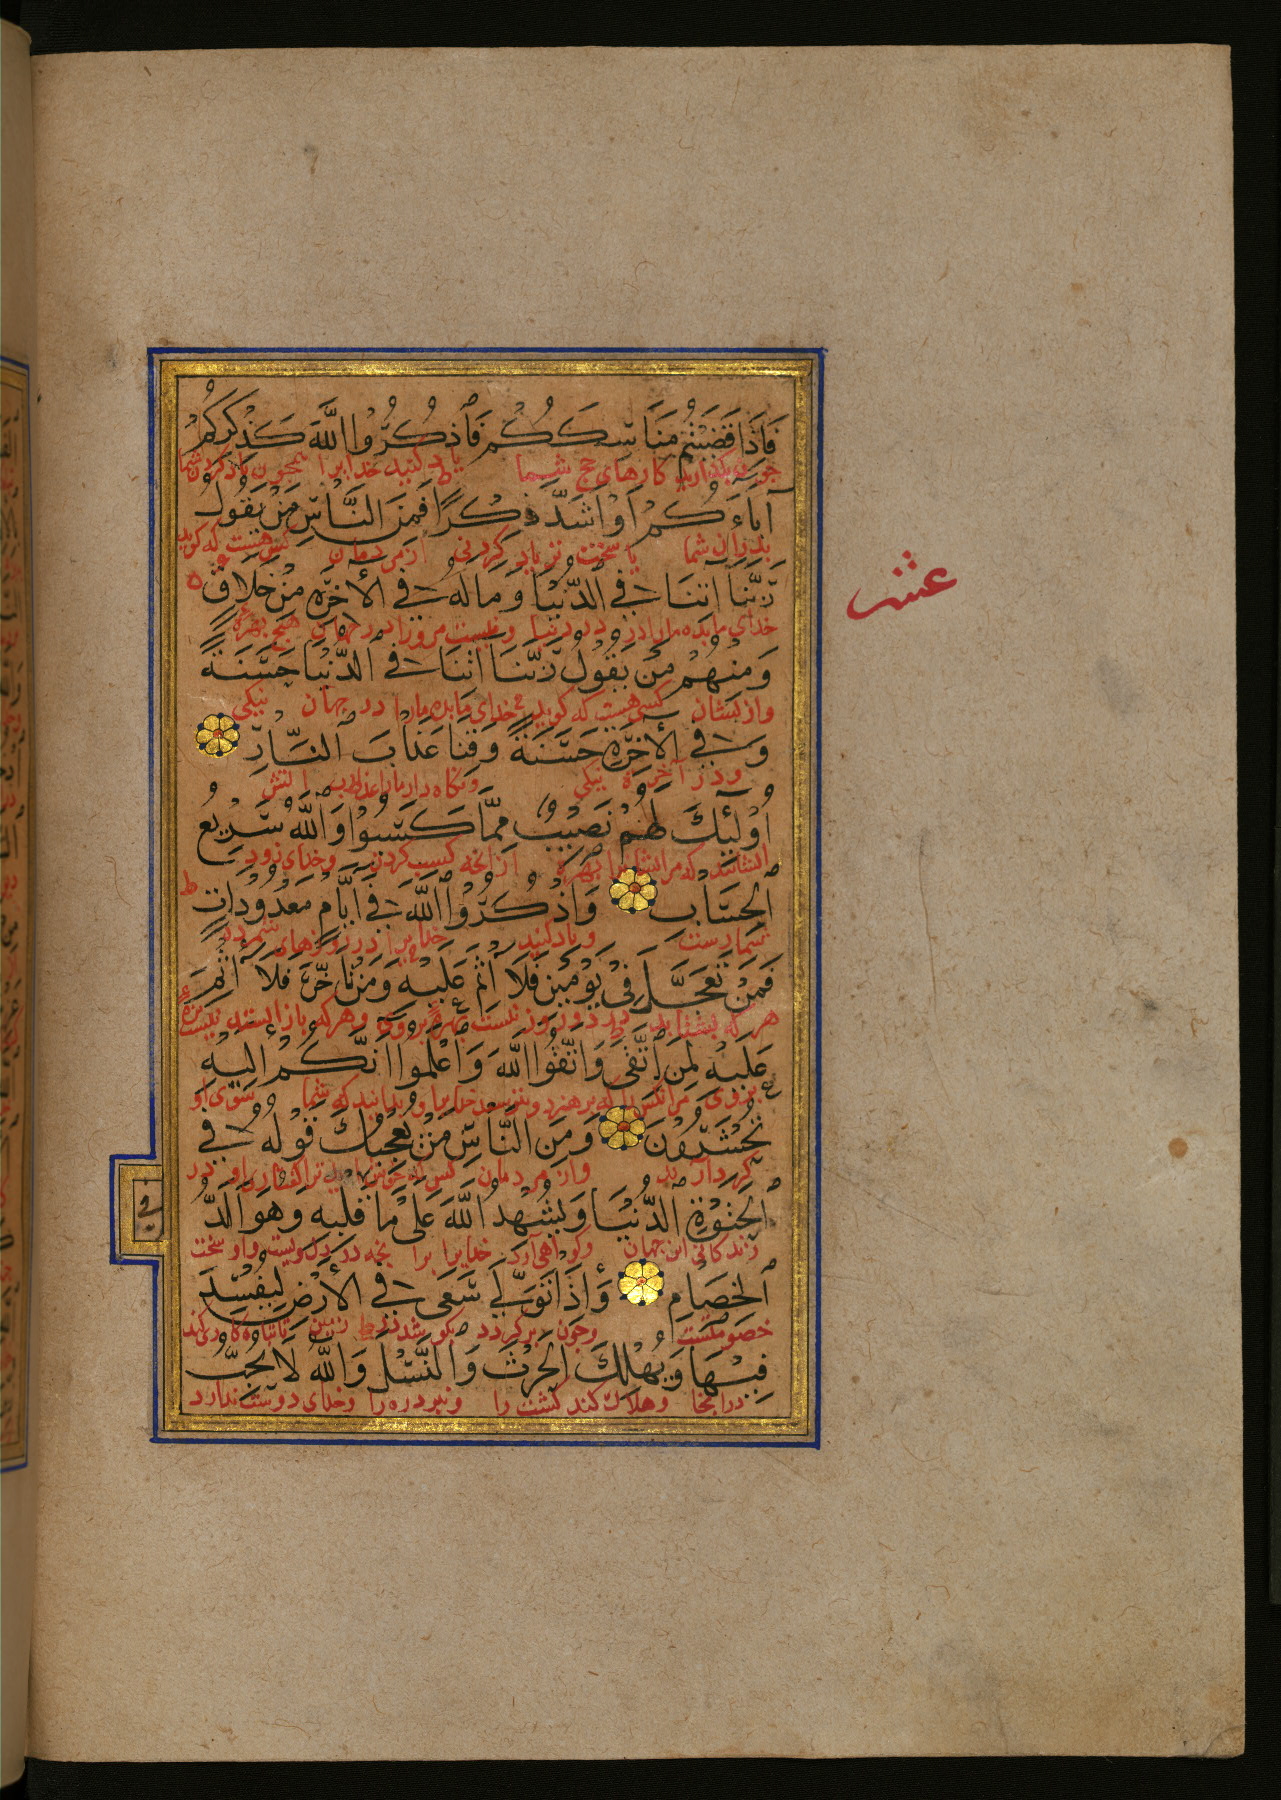 فَإِذَا قَضَيْتُمْ مَنَاسِكَكُمْ فَاذْكُرُوا اللَّهَ كَذِكْرِكُمْ
چون بگذارید کارهای حج شما یاد کنید خدایرا همچون یاد کردن شما
آبَاءَكُمْ أَوْ أَشَدَّ ذِكْرًا فَمِنَ النَّاسِ مَنْ يَقُولُ
پدران شما یا سخت تر یاد کردنی از مردمان کس هست که گوید
رَبَّنَا آتِنَا فِي الدُّنْيَا وَمَا لَهُ فِي الْأَخِرَةِ مِنْ خَلَاقٍ
خدای ما بده مارا در دنیا و نیست مرورا در جهان هیچ بهره
عشر
وَمِنْهُمْ مَنْ يَقُولُ رَبَّنَا آتِنَا فِي الدُّنْيَا حَسَنَةً
و از یشان کسی هست که گوید خدای ما بده مارا در جهان نیکی
وَفِي الْأَخِرَةِ حَسَنَةً وَقِنَا عَذَابَ النَّارِ
و در آخرة نیکی و نگاه دار مارا عذاب آتش
أُوْلَئِكَ لَهُمْ نَصِيبٌ مِمَّا كَسَبُوا وَاللَّهُ سَرِيعُ
بهره از آنچه کسب کردن و خدای زود
الْحِسَابِ وَاذْكُرُوا اللَّهَ فِي أَيَّامٍ مَعْدُودَاتٍ
شمارست و یاد کنید خدایرا در روزهای شمرده
فَمَنْ تَعَجَّلَ فِي يَوْمَيْنِ فَلَا أثْمَ عَلَيْهِ وَمَنْ تَأَخَّرَ فَلَا أثْمَ
هر که بشتابد در دو روز نیست بزه بروی و هر که باز ایستد نیست بزه
عَلَيْهِ لِمَنِ اتَّقَى وَاتَّقُوا اللَّهَ وَاعْلَمُوا أَنَّكُمْ إِلَيْهِ
بروی مر آنکس را که پرهیزد و بترسید خدایرا و بدانید که شما سوی او
تُحْشَرُونَ وَمِنَ النَّاسِ مَنْ يُعْجِبُكَ قَوْلُهُ فِي
گرد آرند و از مردمان کس در
الْحَيَوةِ الدُّنْيَا وَيُشْهِدُ اللَّهَ عَلَى مَا قَلْبِهِ وَهُوَ أَلَدُّ
فى
زندگانی این جهان و گواهی آرد خدایرا برا در دل ویست و او سخت
الْخِصَامِ وَإِذَا تَوَلَّى سَعَى فِي الْأَرْضِ لِيُفْسِدَ
خصومتست و چون برگردد بکوشد در زمین تا تباه کاری کند
فِيهَا وَيُهْلِكَ الْحَرْثَ وَالنَّسْلَ وَاللَّهُ لَا يُحِبُّ
در آنجا و هلاک کند کشت را و خدای دوست ندارد